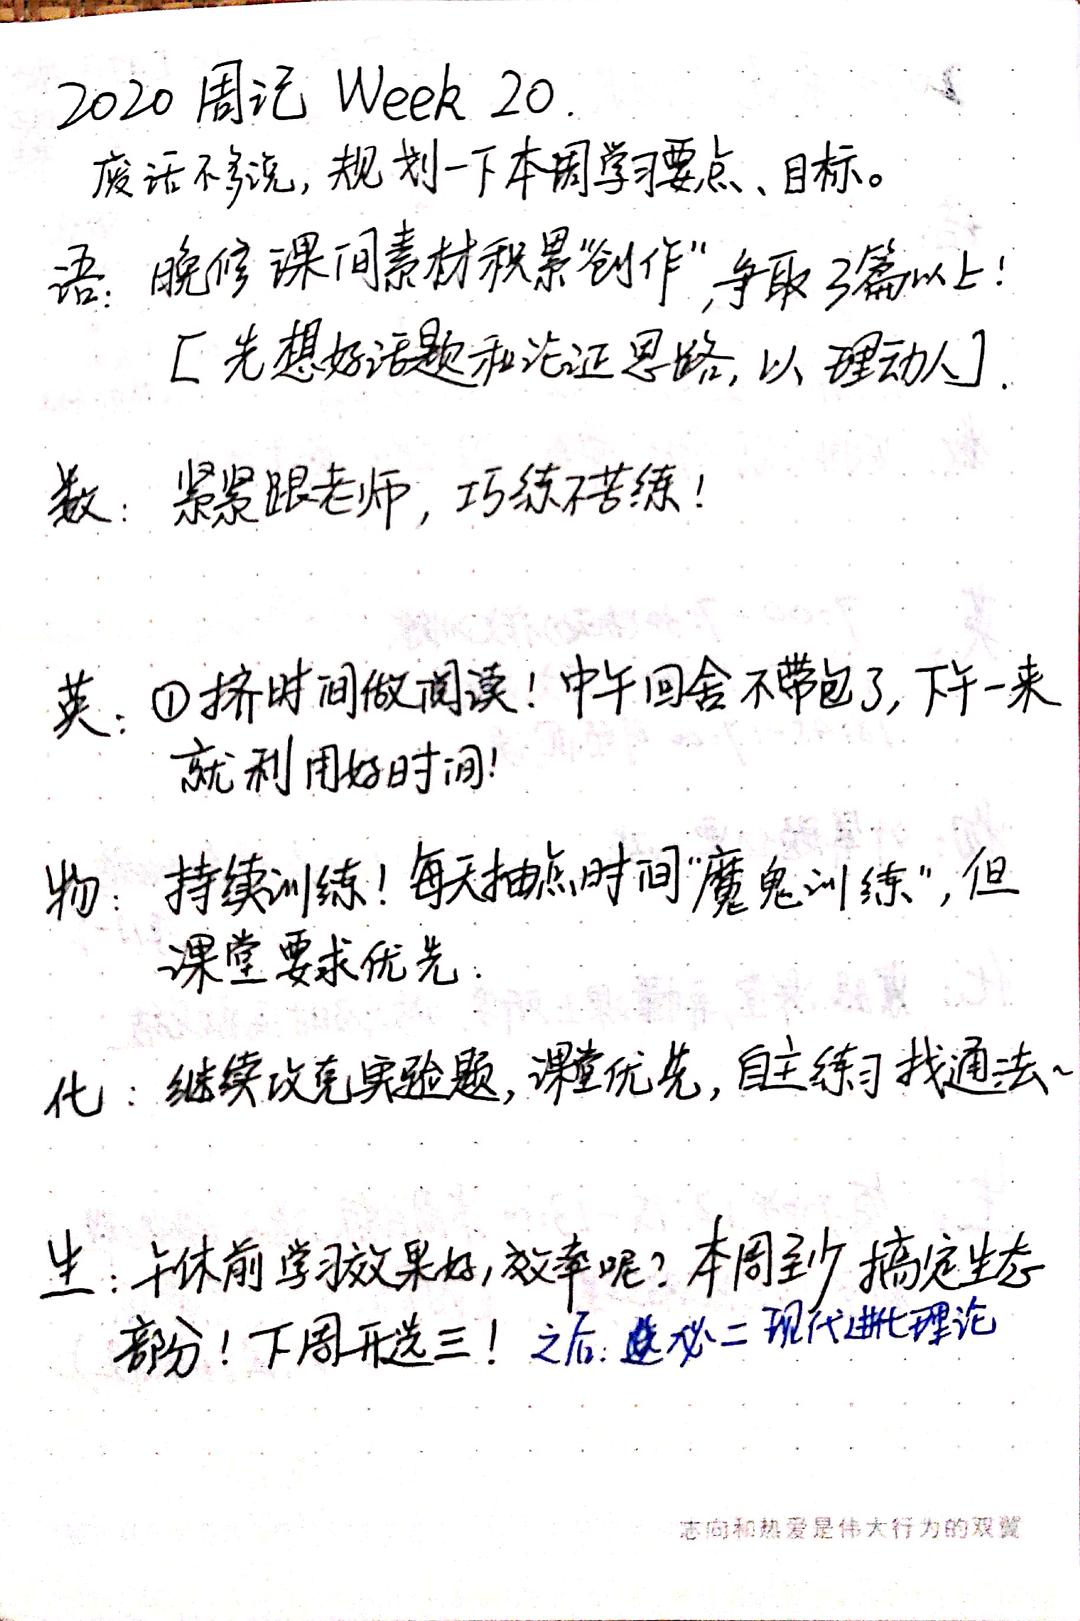 2020 周记 Week 20.
废话不多说, 规划一下本周学习要点、目标。
语: 晚修课间素材积累"创作", 争取3篇以上!
[先想好话题和论证思路, 以理动人].
数: 紧紧跟老师, 巧练不苦练!
英: ①挤时间做阅读! 中午回舍不带包了, 下午一来
就利用好时间!
物: 持续训练! 每天抽点时间"魔鬼训练", 但
课堂要求优先.
化: 继续攻克实验题, 课堂优先, 自主练习找通法~
生: 午休前学习效果好, 效率呢? 本周至少搞定生态
部分! 下周开选三! 之后: 必二现代进化理论
志向和热爱是伟大行为的双翼